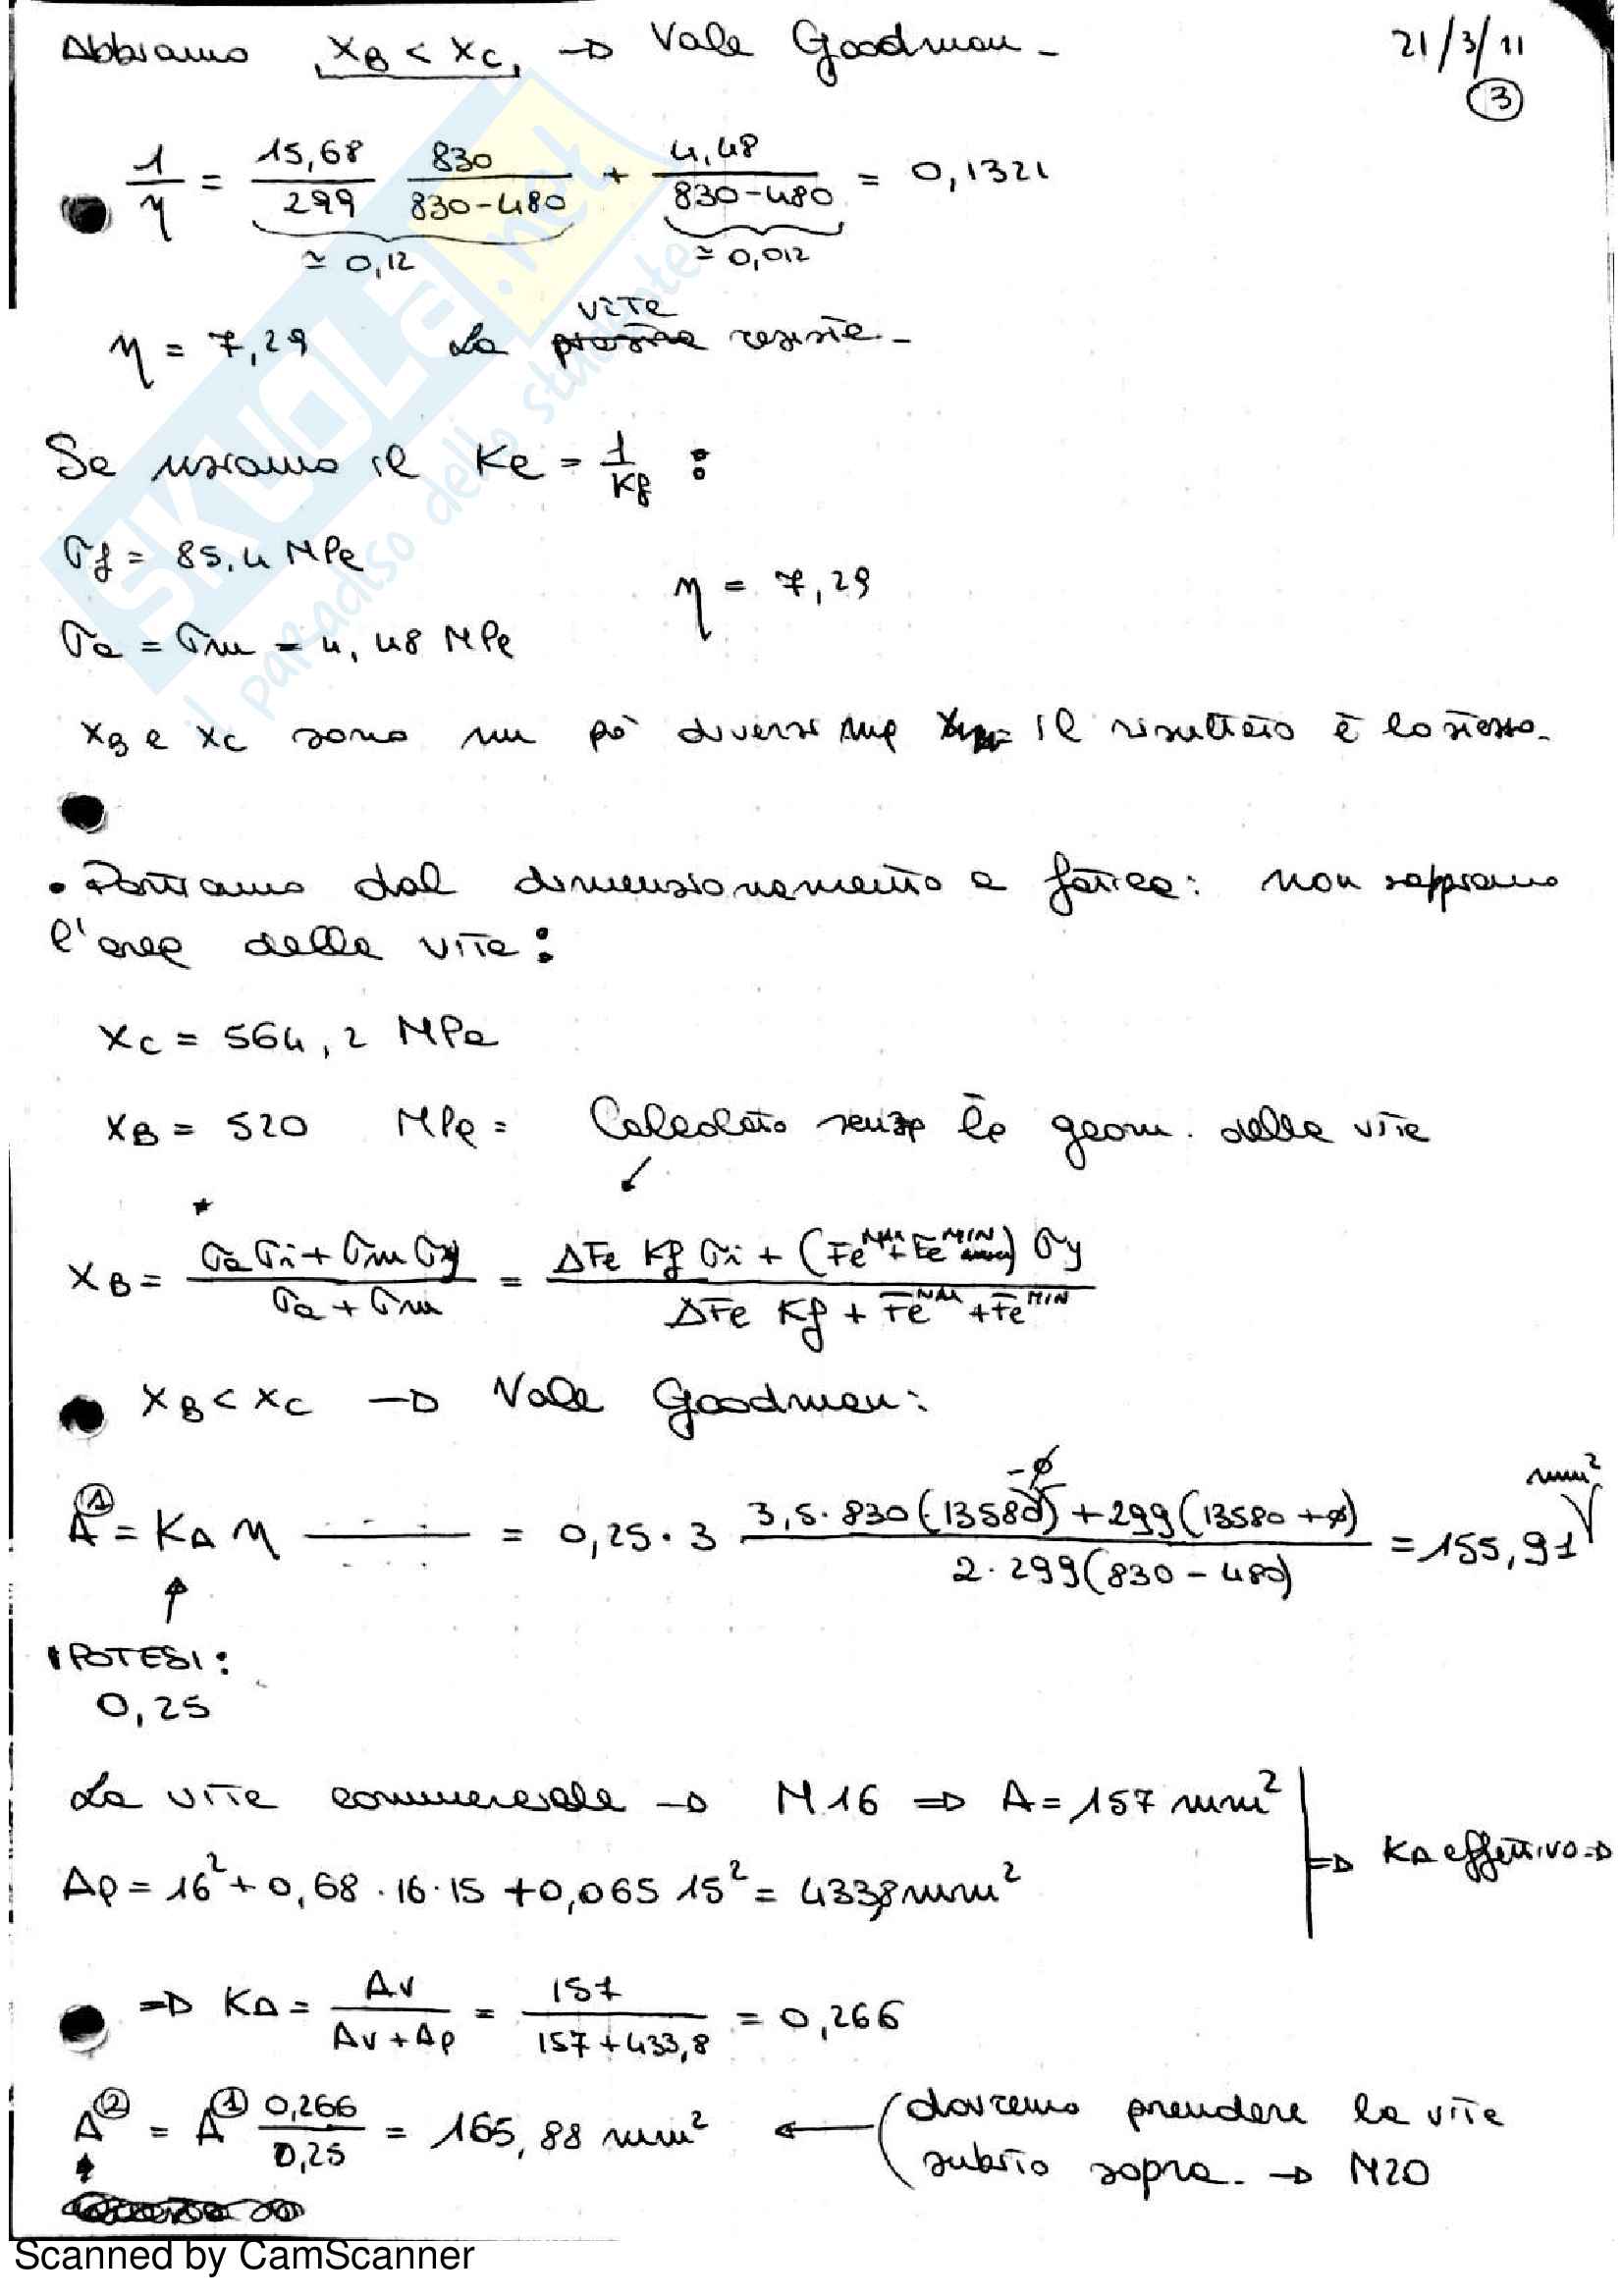 Abbiamo xB < xC → Vale Goodman -
21/3/11
3
1/η = 15,68/299 830/(830-480) + 4,48/(830-480) = 0,1321
≃ 0,12 ≃ 0,012
vite
η = 7,29 La resiste -
Se usiamo il Ke = 1/Kf :
σf = 85,4 MPa
η = 7,29
σa = σm = 4,48 MPa
xB e xC sono un pò diversi ma il risultato è lo stesso.
• Partiamo dal dimensionamento a fatica: non sappiamo
l'area della vite:
xC = 564,2 MPa
xB = 520 MPa = Calcolato senza la geom. della vite
xB = (σa* σi + σm σy)/(σa + σm) = (ΔFe Kf σi + (Fe^MAX + Fe^MIN) σy)/(ΔFe Kf + Fe^MAX + Fe^MIN)
xB < xC → Vale Goodman:
A① = KA η = 0,25 · 3 (3,5 · 830 (13580 - ∅) + 299 (13580 + ∅))/(2 · 299 (830 - 480)) = 155,91 mm²
IPOTESI:
0,25
La vite commerciale → M16 ⇒ A = 157 mm²
⇒ KA effettivo ⇒
Ap = 16² + 0,68 · 16 · 15 + 0,065 15² = 433,8 mm²
⇒ KA = Av/(Av + Ap) = 157/(157 + 433,8) = 0,266
A② = A① 0,266/0,25 = 165,88 mm² ← (dovremo prendere la vite
subito sopra. → M20
Scanned by CamScanner
SKUOLA.net
il paradiso dello studente